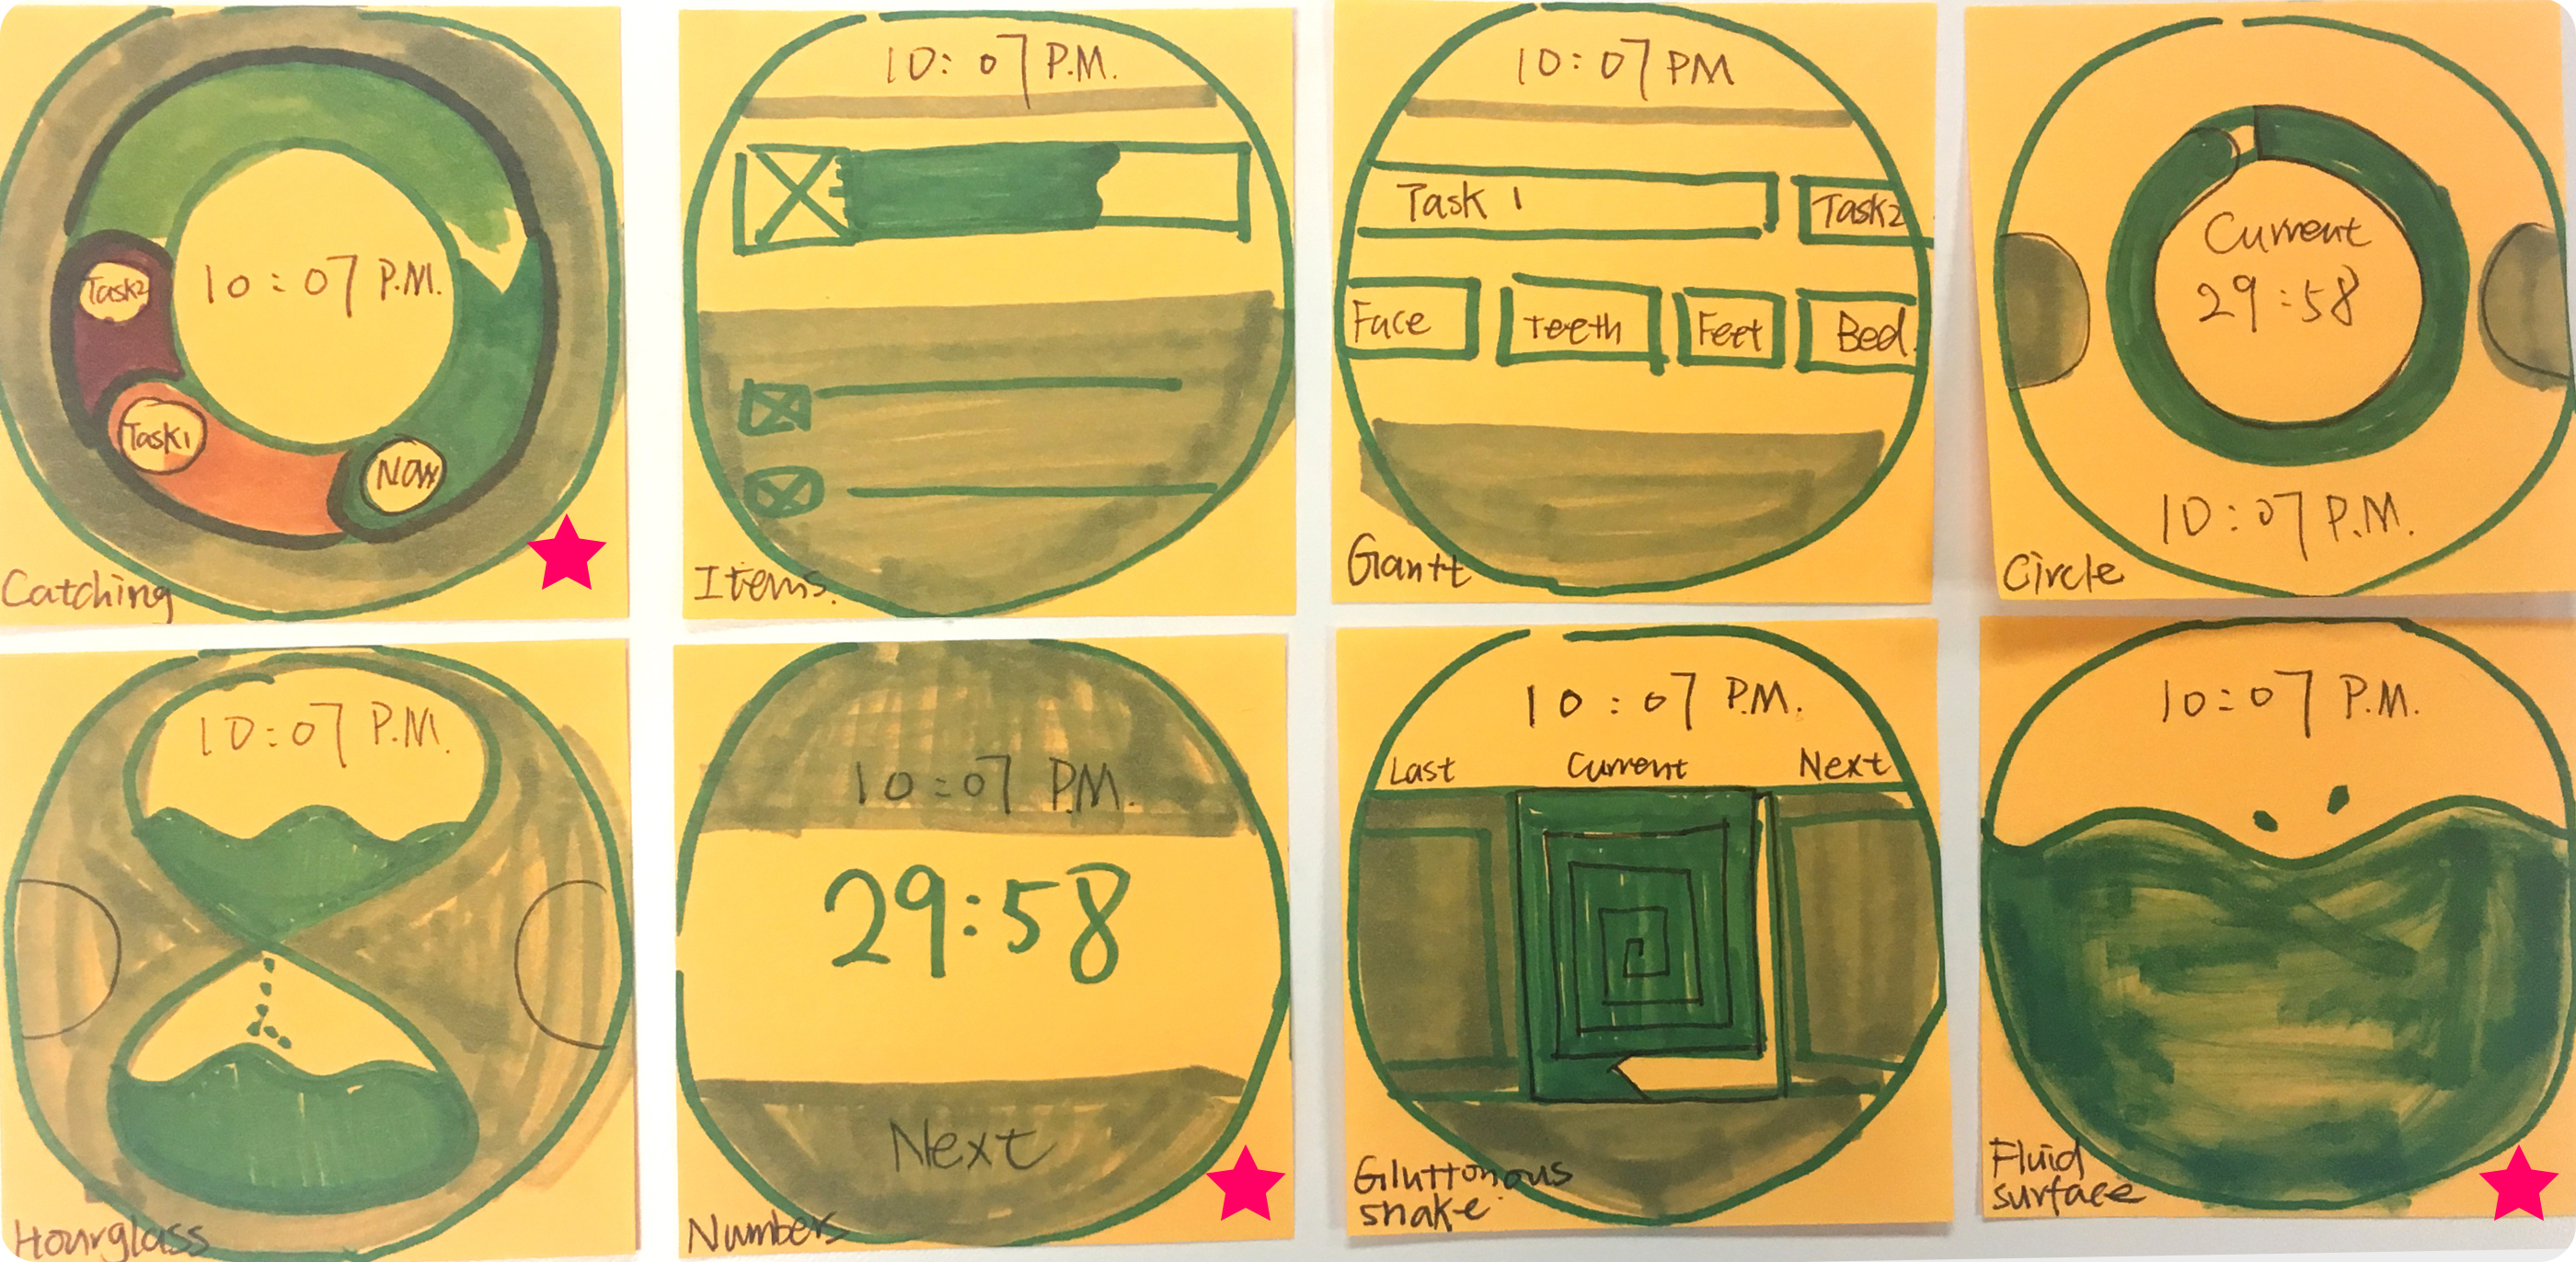 10:07 P.M.
Task2
Task1
Now
Catching
10:07 P.M.
Items.
10:07 PM
Task 1
Task2
Face
Teeth
Feet
Bed.
Gantt
Current
29:58
10:07 P.M.
Circle
10:07 P.M.
Hourglass
10:07 P.M.
29:58
Next
Numbers
10:07 P.M.
Last
Current
Next
Gluttonous
snake
10:07 P.M.
Fluid
surface